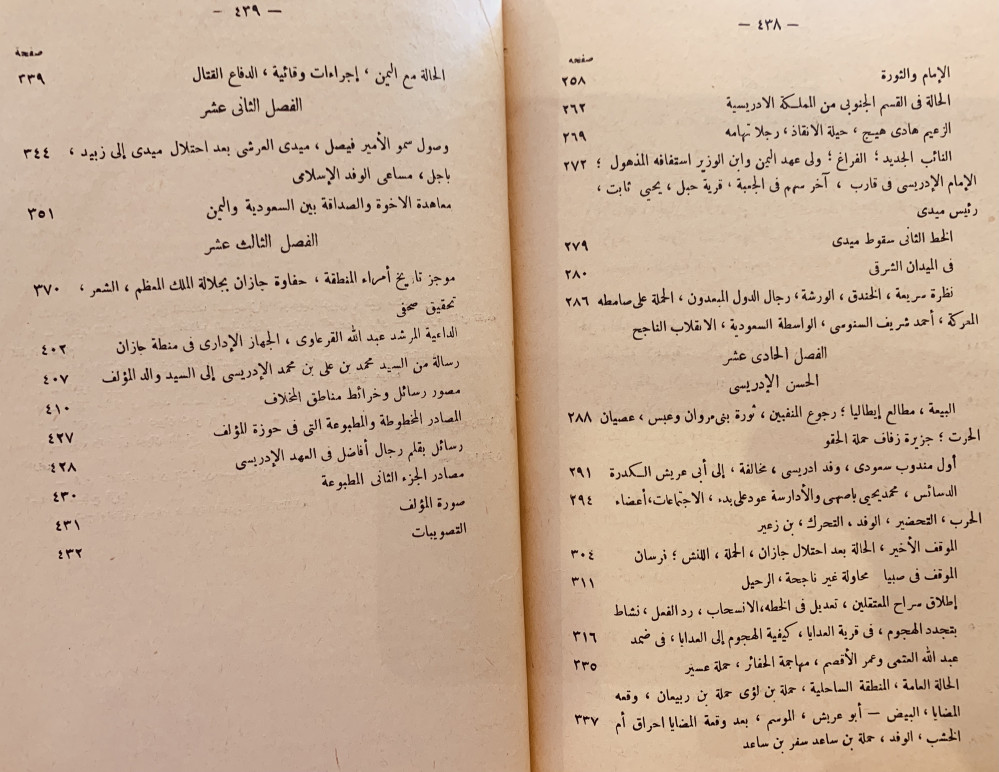 — ٤٣٨ —
صفحه
الإمام والثورة ٢٥٨
الحالة فى القسم الجنوبى من المملكة الادريسية ٢٦٢
الزعيم هادى هيج ، حيلة الانقاذ ، رجلا تهامه ٢٦٩
النائب الجديد ؛ الفراغ ؛ ولى عهد اليمن وابن الوزير استفافه المذهول ؛ ٢٧٢
الإمام الإدريسى فى قارب ، آخر سهم فى الجعبة ، قرية حبل ، يحيى ثابت ،
رئيس ميدى
الخط الثانى سقوط ميدى ٢٧٩
فى الميدان الشرقى ٢٨٠
نظرة سريعة ، الخندق ، الورشة ، رجال الدول المبعدون ، الحملة على صامطه ٢٨٦
المعركة ، أحمد شريف السنوسى ، الواسطة السعودية ، الانقلاب الناجح
الفصل الحادى عشر
الحسن الإدريسى
البيعة ، مطالع إيطاليا ؛ رجوع المنفيين ، ثورة بنى مروان وعبس ، عصيان ٢٨٨
الحرث ؛ جزيرة زفاف حملة الحقو
أول مندوب سعودى ، وفد ادريسى ، مخالفة ، إلى أبى عريش الكدرة ٢٩١
الدسائس ، محمد يحيى باصهى والأدارسة عود على بدء ، الاجتماعات ، أعضاء ٢٩٤
الحرب ، التحضير ، الوفد ، التحرك ، بن زعير
الموقف الأخير ، الحالة بعد احتلال جازان ، الحملة ، اللنش ؛ فرسان ٣٠٤
الموقف فى صبيا محاولة غير ناجحة ، الرحيل ٣١١
إطلاق سراح المعتقلين ، تعديل فى الخطه ، الانسحاب ، رد الفعل ، نشاط
يتجدد الهجوم ، فى قرية العدايا ، كيفية الهجوم إلى العدايا ، فى ضمد ٣١٦
عبد الله العتمى وعمر الأقصم ، مهاجمة الحفائر ، حملة عسير ٢٣٥
الحالة العامة ، المنطقة الساحلية ، حملة بن لؤى حملة بن ربيعان ، وقعه
المضايا ، البيض — أبو عريش ، الموسم ، بعد وقعة المضايا احراق أم ٣٣٧
الخشب ، الوفد ، حملة بن ساعد سفر بن ساعد
— ٤٣٩ —
صفحة
الحالة مع اليمن ، إجراءات وقائية ، الدفاع القتال ٣٣٩
الفصل الثانى عشر
وصول سمو الأمير فيصل ، ميدى العرشى بعد احتلال ميدى إلى زبيد ، ٣٤٤
باجل ، مساعى الوفد الإسلامى
معاهدة الاخوة والصداقة بين السعودية واليمن ٣٥١
الفصل الثالث عشر
موجز تاريخ أمراء المنطقة ، حفاوة جازان بجلالة الملك المعظم ، الشعر ، ٣٧٠
تحقيق صحفى
الداعية المرشد عبد الله القرعاوى ، الجهاز الإدارى فى منطة جازان ٤٠٢
رسالة من السيد محمد بن على بن محمد الإدريسى إلى السيد والد المؤلف ٤٠٧
مصور رسائل وخرائط مناطق المخلاف ٤١٠
المصادر المخطوطة والمطبوعة التى فى حوزة المؤلف ٤٢٧
رسائل بقلم رجال أفاضل فى العهد الإدريسى ٤٢٨
مصادر الجزء الثانى المطبوعة ٤٣٠
صورة المؤلف ٤٣١
التصويبات ٤٣٢